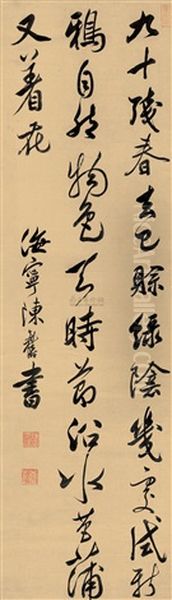 九十殘春去已賒綠陰幾處試新
鴉自然物色天時節沿水菖蒲
又着花
海寧陳書